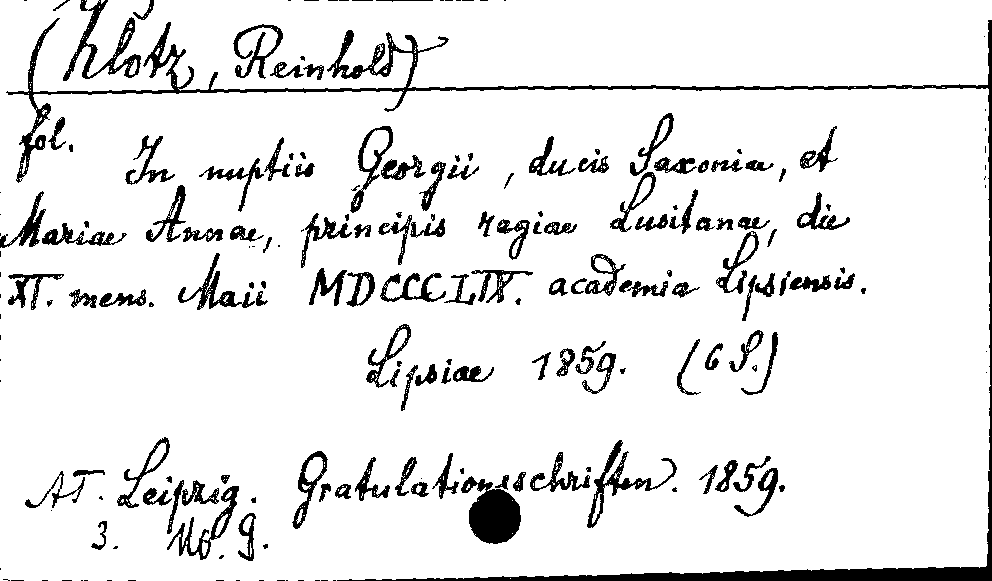 (Klotz, Reinhold)
fol.
In nuptiis Georgii, ducis Saxoniae, et
Mariae Annae, principis regiae Lusitanae, die
XI. mens. Maii MDCCCLIX. academia Lipsiensis.
Lipsiae 1859. (6 S.)
AT. Leipzig. Gratulationsschriften. 1859.
3. No. 9.